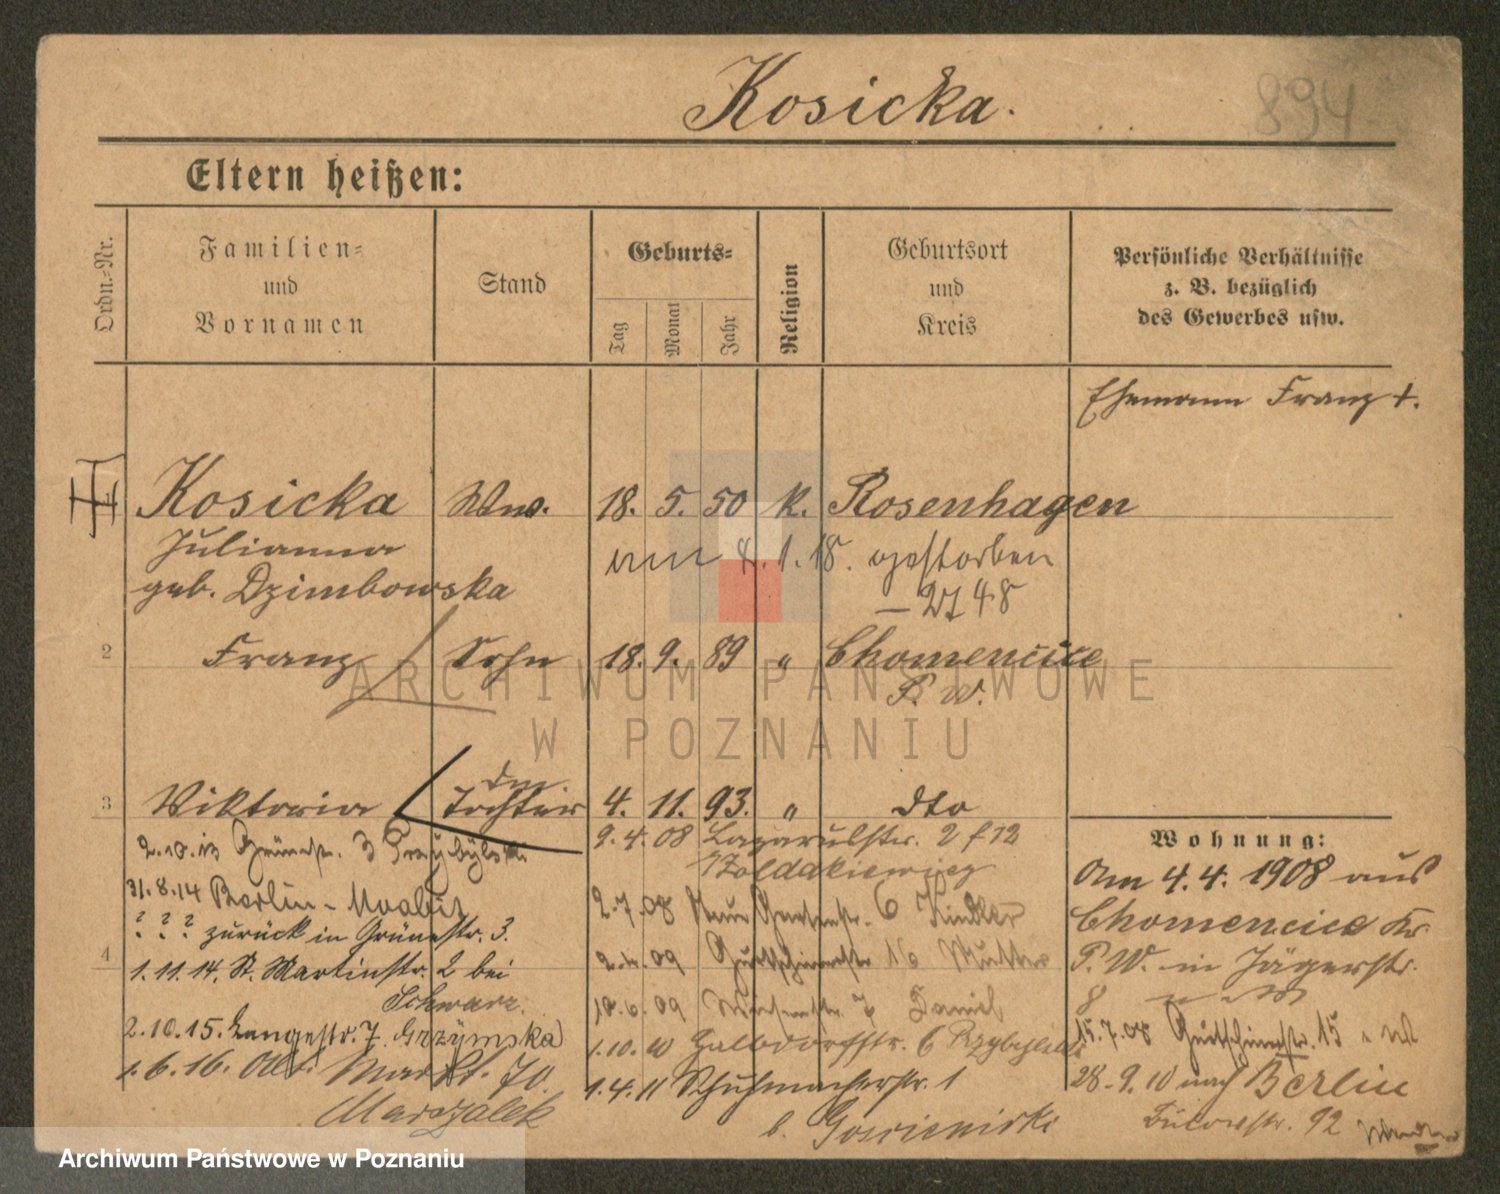 Kosicka.
894
Eltern heißen:
Ordn.-Nr.
Familien-
und
Vornamen
Stand
Geburts-
Tag
Monat
Jahr
Religion
Geburtsort
und
Kreis
Persönliche Verhältnisse
z. B. bezüglich
des Gewerbes usw.
Ehemann Franz †.
1 Kosicka Ww. 18. 5. 50 K. Rosenhagen
Julianna
geb. Dzimbowska
am 8. 1. 18. gestorben
2 Franz Sohn 18. 9. 89 " Chomencice
P. W.
3 Viktoria Tochter 4. 11. 93. " dto
2.10.13 Grünestr. 3
31.8.14 Berlin-Moabit
? ? ? zurück in Grünestr. 3.
4
1.11.14. St. Martinstr. 2 bei
Schwarz.
2.10.15. Langestr. 7. Grzymska
1.6.16. Alt. Markt. 70.
Marszalek
9.4.08 Lazarusstr. 2
2.7.08 Neue Gartenstr. 6 Kindler
2.4.09 16 Mutter
10.6.09
1.10.10
1.4.11 Schuhmacherstr. 1
b.
Wohnung:
Am 4.4.1908 aus
Chomencice Kr.
P. W. in Jägerstr.
8
15.7.08 15
28.9.10 nach Berlin
Bülowstr. 92
ARCHIWUM PAŃSTWOWE
W POZNANIU
Archiwum Państwowe w Poznaniu